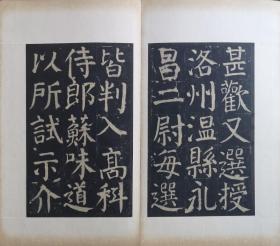 甚歡又選授
洛州温縣永
昌二尉每選
皆判入高科
侍郎蘇味道
以所試示介